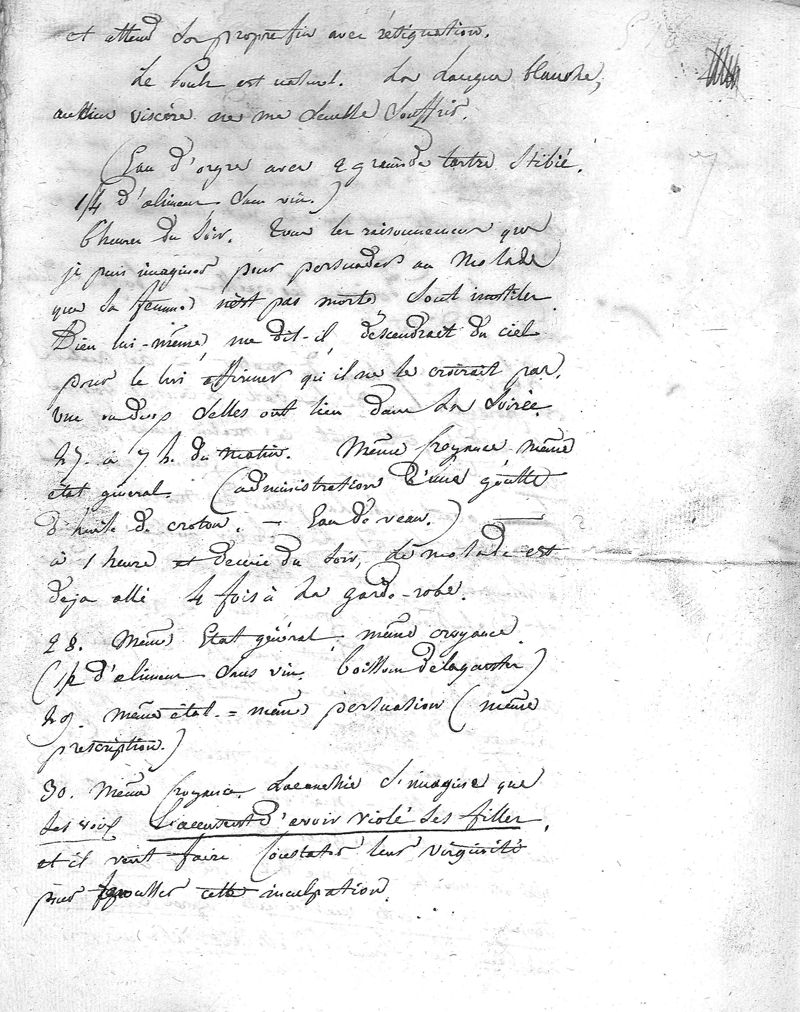 et attend son propre fin avec résignation.
Le pouls est naturel. La Langue blanche,
aucun viscère ne me semble souffrir.
(Eau d'orge avec 2 grains de tartre stibié.
1/4 d'aliment sans vin.)
6 heures du soir. Tous les raisonnemens que
je puis imaginer pour persuader au malade
que sa femme n'est pas morte, sont inutiles.
Dieu lui-même, me dit-il, descendrait du ciel
pour le lui affirmer qu'il ne le croirait pas.
une ou deux selles ont lieu dans la soirée.
27. à 7 h. du matin. Même croyance même
état général. (administration d'une goutte
d'huile de croton. - Eau de veau.)
à 1 heure et demie du soir, le malade est
déja allé 4 fois à la garde-robe.
28. Même Etat général, même croyance.
(1/2 d'aliment sans vin. boisson délayante)
29. même état. = même persuation (même
prescription.)
30. Même croyance. s'imagine que
ses l'accusent d'avoir violé ses filles,
et il veut faire constater leur virginité
pour cette inculpation.